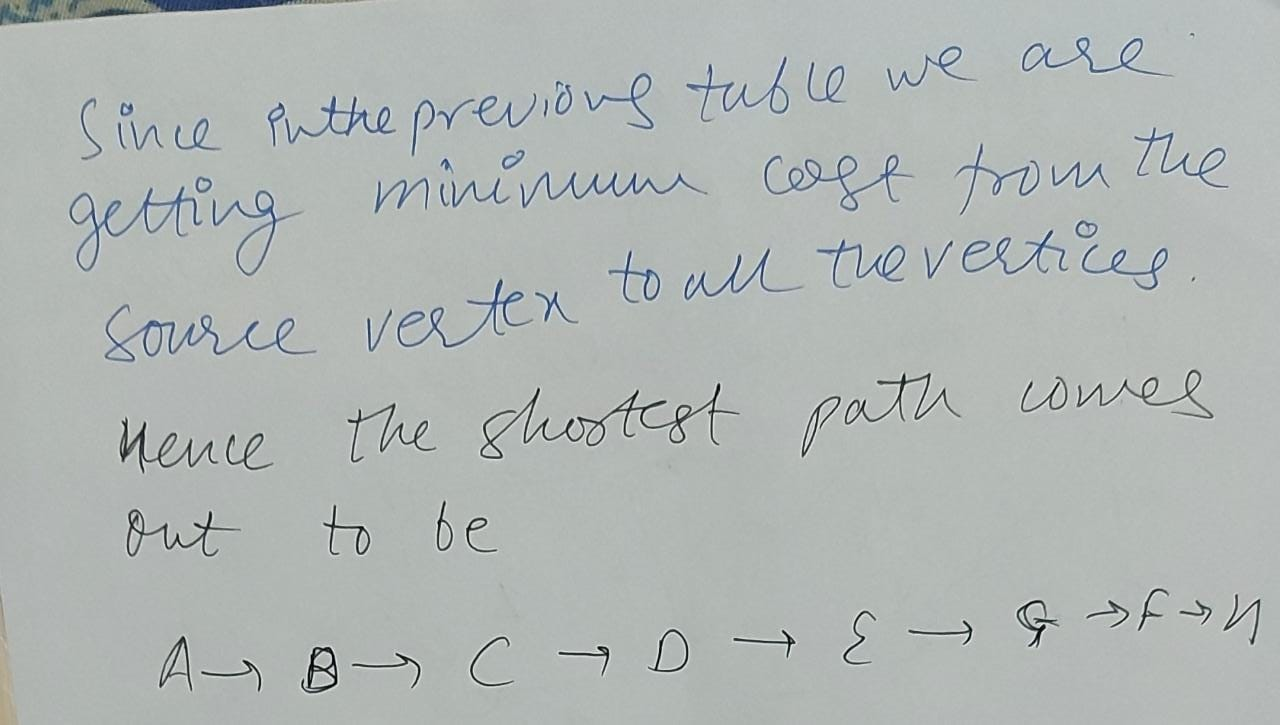 Since in the previous table we are
getting minimum cost from the
source vertex to all the vertices.
Hence the shortest path comes
out to be
A → B → C → D → E → G → F → H